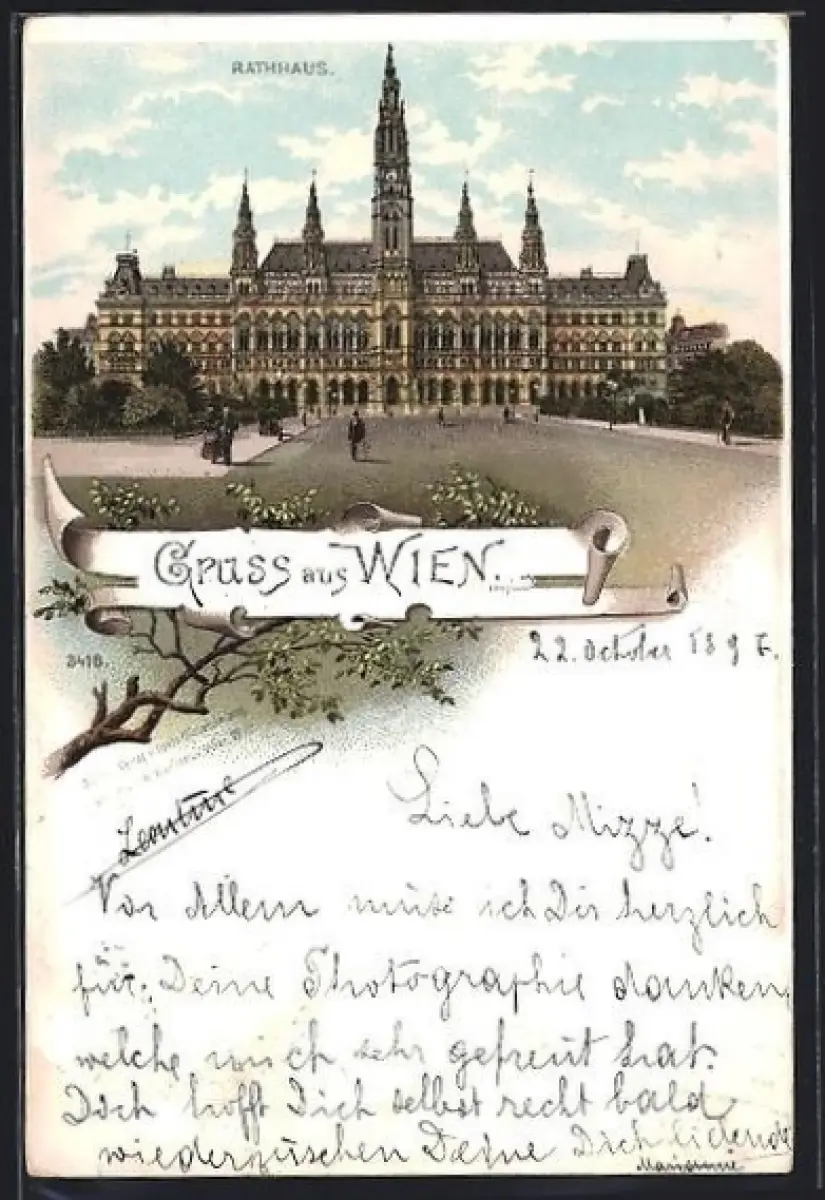 RATHHAUS.
Gruss aus WIEN.
3418.
22. October 189
Liebe Mizze!
Vor Allem muss ich Dir herzlich
für Deine Photographie danken,
welche mich sehr gefreut hat.
Dich hofft Dich selbst recht bald
wiederzusehen Deine Dich liebende
Marianne